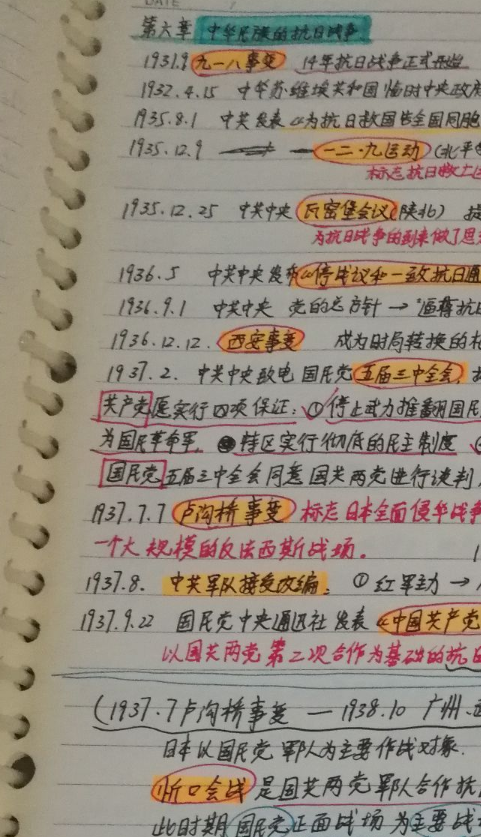 DATE
第六章 中华民族的抗日战争
1931.9 九一八事变 14年抗日战争正式开始
1932.4.15 中华苏维埃共和国临时中央政府
1935.8.1 中共发表《为抗日救国告全国同胞
1935.12.9 一二·九运动 (北平
标志抗日救亡
1935.12.25 中共中央 瓦窑堡会议 (陕北)
为抗日战争的到来做了思
1936.5 中共中央发布《停战议和一致抗日通
1936.9.1 中共中央 党的总方针→"逼蒋抗日
1936.12.12. 西安事变 成为时局转换的
1937.2. 中共中央致电国民党五届三中全会,
共产党愿实行四项保证: ①停止武力推翻国民
为国民革命军. 特区实行彻底的民主制度
国民党五届三中全会同意国共两党进行谈判
1937.7.7 卢沟桥事变 标志日本全面侵华战争
一个大规模的反法西斯战场。
1937.8. 中共军队接受改编: ①红军主力→
1937.9.22 国民党中央通讯社发表《中国共产党
以国共两党第二次合作为基础的抗日
(1937.7卢沟桥事变 — 1938.10 广州.
日本以国民党军队为主要作战对象.
忻口会战是国共两党军队合作抗
此时期国民党正面战场为主要战